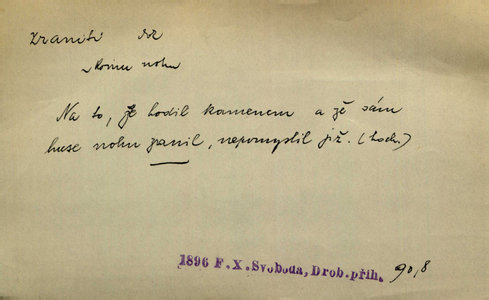 zraniti
komu nohu
Na to, že hodil kamenem a že sám
huse nohu zranil, nepomyslil již. (hoch.)
1896 F. X. Svoboda, Drob. příh. 90,8